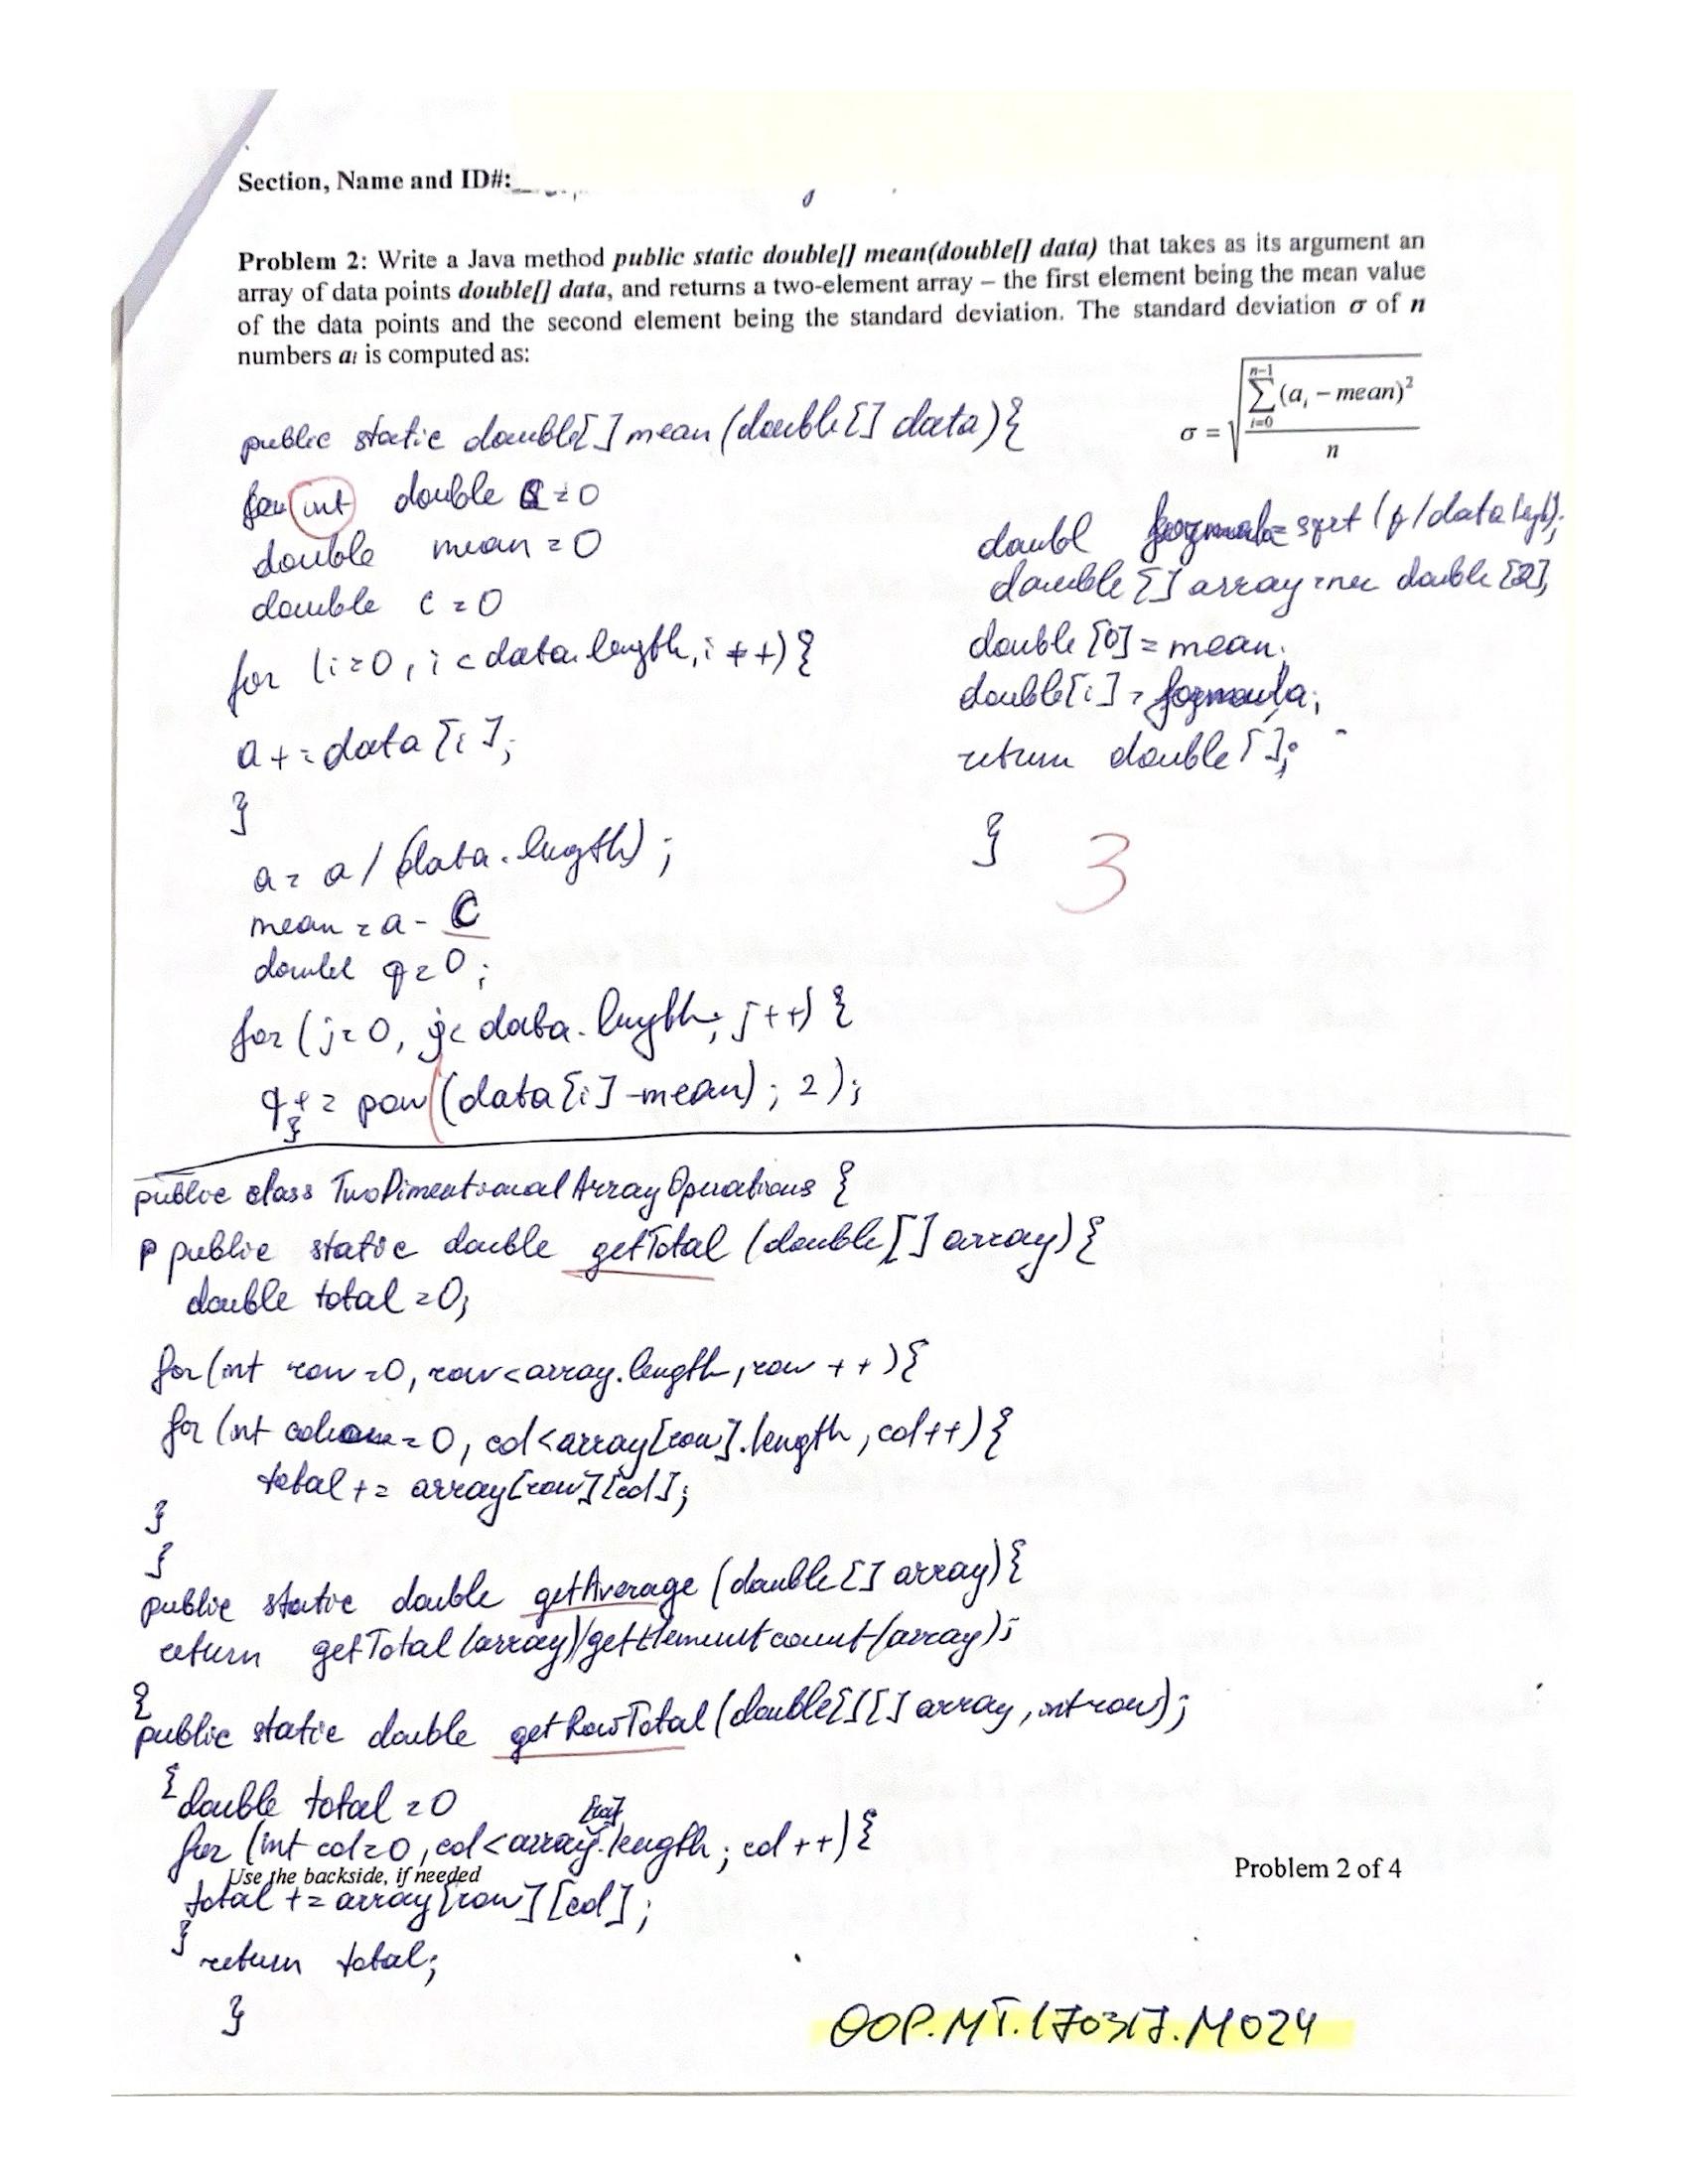 Section, Name and ID#:
Problem 2: Write a Java method public static double[] mean(double[] data) that takes as its argument an
array of data points double[] data, and returns a two-element array – the first element being the mean value
of the data points and the second element being the standard deviation. The standard deviation σ of n
numbers aᵢ is computed as:
σ = √(∑_{i=0}^{n-1} (aᵢ – mean)² / n)
public static double[] mean (double[] data){
int double a = 0
double mean = 0
double c = 0
for (i=0, i < data.length, i++){
a += data[i];
}
a = a / (data.length);
mean = a - C
doubel q=0;
for (j=0, j< data.length; j++) {
q += pow((data[i]-mean); 2);
}
doubl formula= sqrt (q/data legth);
double [] array = nec double [2],
double [0] = mean;
double[i] = formula;
return double[];
}
3
public class TwoDimentional Array Operations {
p public static double getTotal (double[] array){
double total = 0;
for (int row =0, row < array.length, row ++){
for (int column = 0, col < array[row].length, col++){
total += array[row][col];
}
}
public static double getAverage (double[] array){
return getTotal (array)/getElementcount (array);
{
public static double getRowTotal (double[][] array, int row);
{ double total = 0
for (int col=0, col < array[row].length; col++){
Use the backside, if needed
Problem 2 of 4
total += array[row][col];
}
return total;
}
OOP.MT.170317.M024